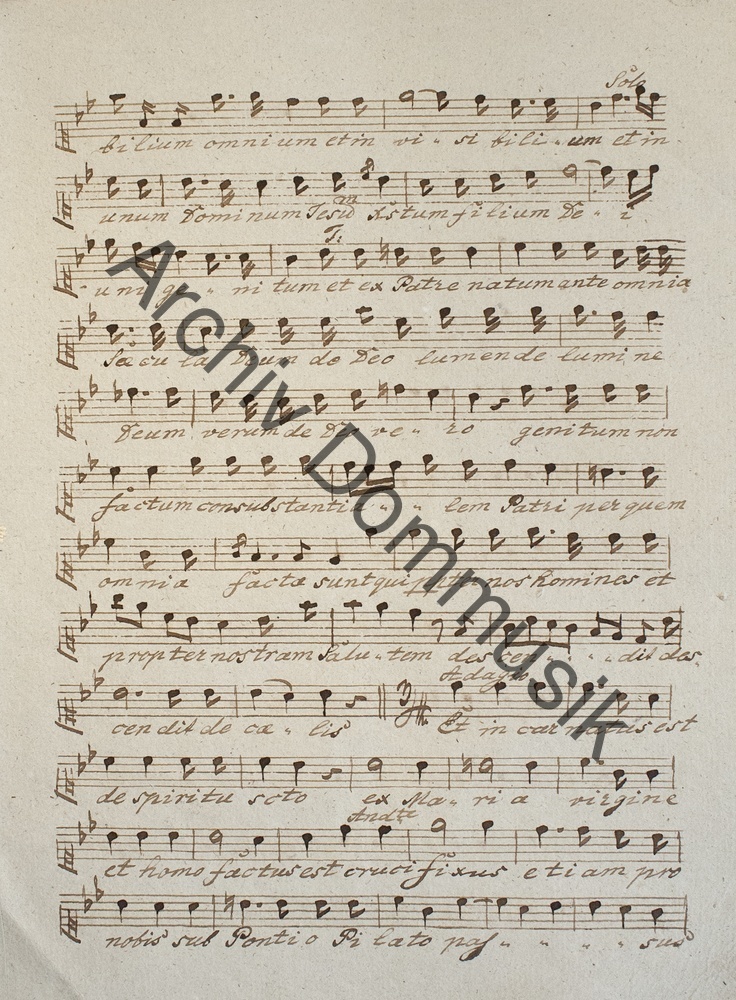 Solo
bilium omnium et in vi - si bili - um et in
unum Dominum Jesum Xstum filium De - i
T:
uni ge - ni tum et ex Patre natum ante omnia
Sæcu la Deum de Deo lumen de lumi ne
Deum verum de Deo ve - ro genitum non
factum consubstantia - - lem Patri per quem
omnia facta sunt qui propter nos homines et
propter nostram Salu - tem descen - - - dit des
cendit de cæ - lis Adagio Et in carnatus est
de spiritu scto ex Ma - ri a virgine
et homo factus est Andte crucifixus etiam pro
nobis sub Ponti o Pi lato pas - - - - sus
Archiv Dommusik